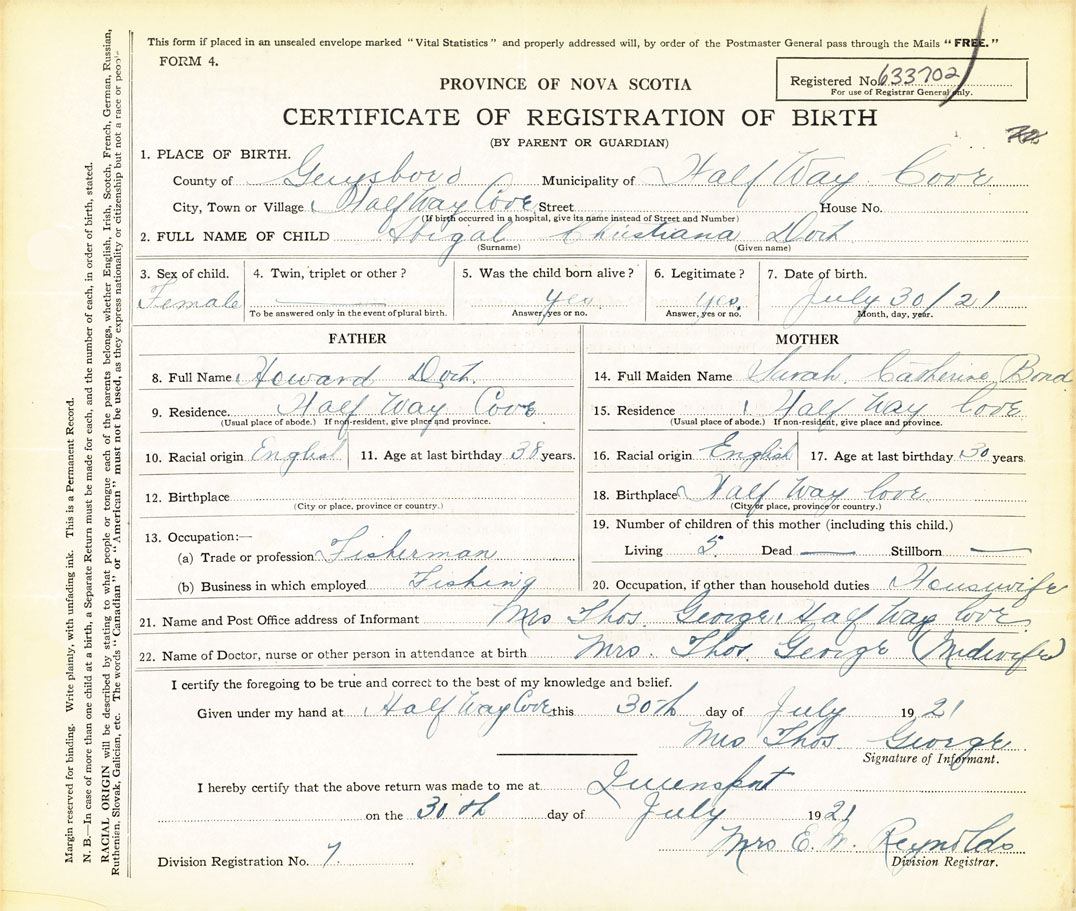 This form if placed in an unsealed envelope marked "Vital Statistics" and properly addressed will, by order of the Postmaster General pass through the Mails "FREE."
FORM 4.
Registered No. 633702
For use of Registrar General only.
PROVINCE OF NOVA SCOTIA
CERTIFICATE OF REGISTRATION OF BIRTH
(BY PARENT OR GUARDIAN)
1. PLACE OF BIRTH.
County of Guysboro Municipality of Half Way Cove
City, Town or Village Half Way Cove Street House No.
(If birth occurred in a hospital, give its name instead of Street and Number)
2. FULL NAME OF CHILD Abigal Christiana Dort
(Surname) (Given name)
3. Sex of child. 4. Twin, triplet or other? 5. Was the child born alive? 6. Legitimate? 7. Date of birth.
Female yes yes. July 30/21
To be answered only in the event of plural birth. Answer, yes or no. Answer, yes or no. Month, day, year.
FATHER
8. Full Name Howard Dort.
9. Residence. Half Way Cove
(Usual place of abode.) If non-resident, give place and province.
10. Racial origin English 11. Age at last birthday 38 years.
12. Birthplace
(City or place, province or country.)
13. Occupation:—
(a) Trade or profession Fisherman
(b) Business in which employed Fishing
MOTHER
14. Full Maiden Name Sarah Catherine Bond
15. Residence Half Way Cove
(Usual place of abode.) If non-resident, give place and province.
16. Racial origin English 17. Age at last birthday 30 years.
18. Birthplace Half Way Cove
(City or place, province or country.)
19. Number of children of this mother (including this child.)
Living 5. Dead — Stillborn —
20. Occupation, if other than household duties Housewife
21. Name and Post Office address of Informant Mrs Thos George, Half Way Cove
22. Name of Doctor, nurse or other person in attendance at birth Mrs. Thos George (Midwife)
I certify the foregoing to be true and correct to the best of my knowledge and belief.
Given under my hand at Half Way Cove this 30th day of July 1921
Mrs Thos George
Signature of Informant.
I hereby certify that the above return was made to me at Queensport
on the 30th day of July 1921
Mrs E. W. Reynolds
Division Registrar.
Division Registration No. 7.
Margin reserved for binding. Write plainly, with unfading ink. This is a Permanent Record.
N. B.—In case of more than one child at a birth, a Separate Return must be made for each, and the number of each, in order of birth, stated.
RACIAL ORIGIN will be described by stating to what people or tongue each of the parents belongs, whether English, Irish, Scotch, French, German, Russian,
Ruthenian, Slovak, Galician, etc. The words "Canadian" or "American" must not be used, as they express nationality or citizenship but not a race or people